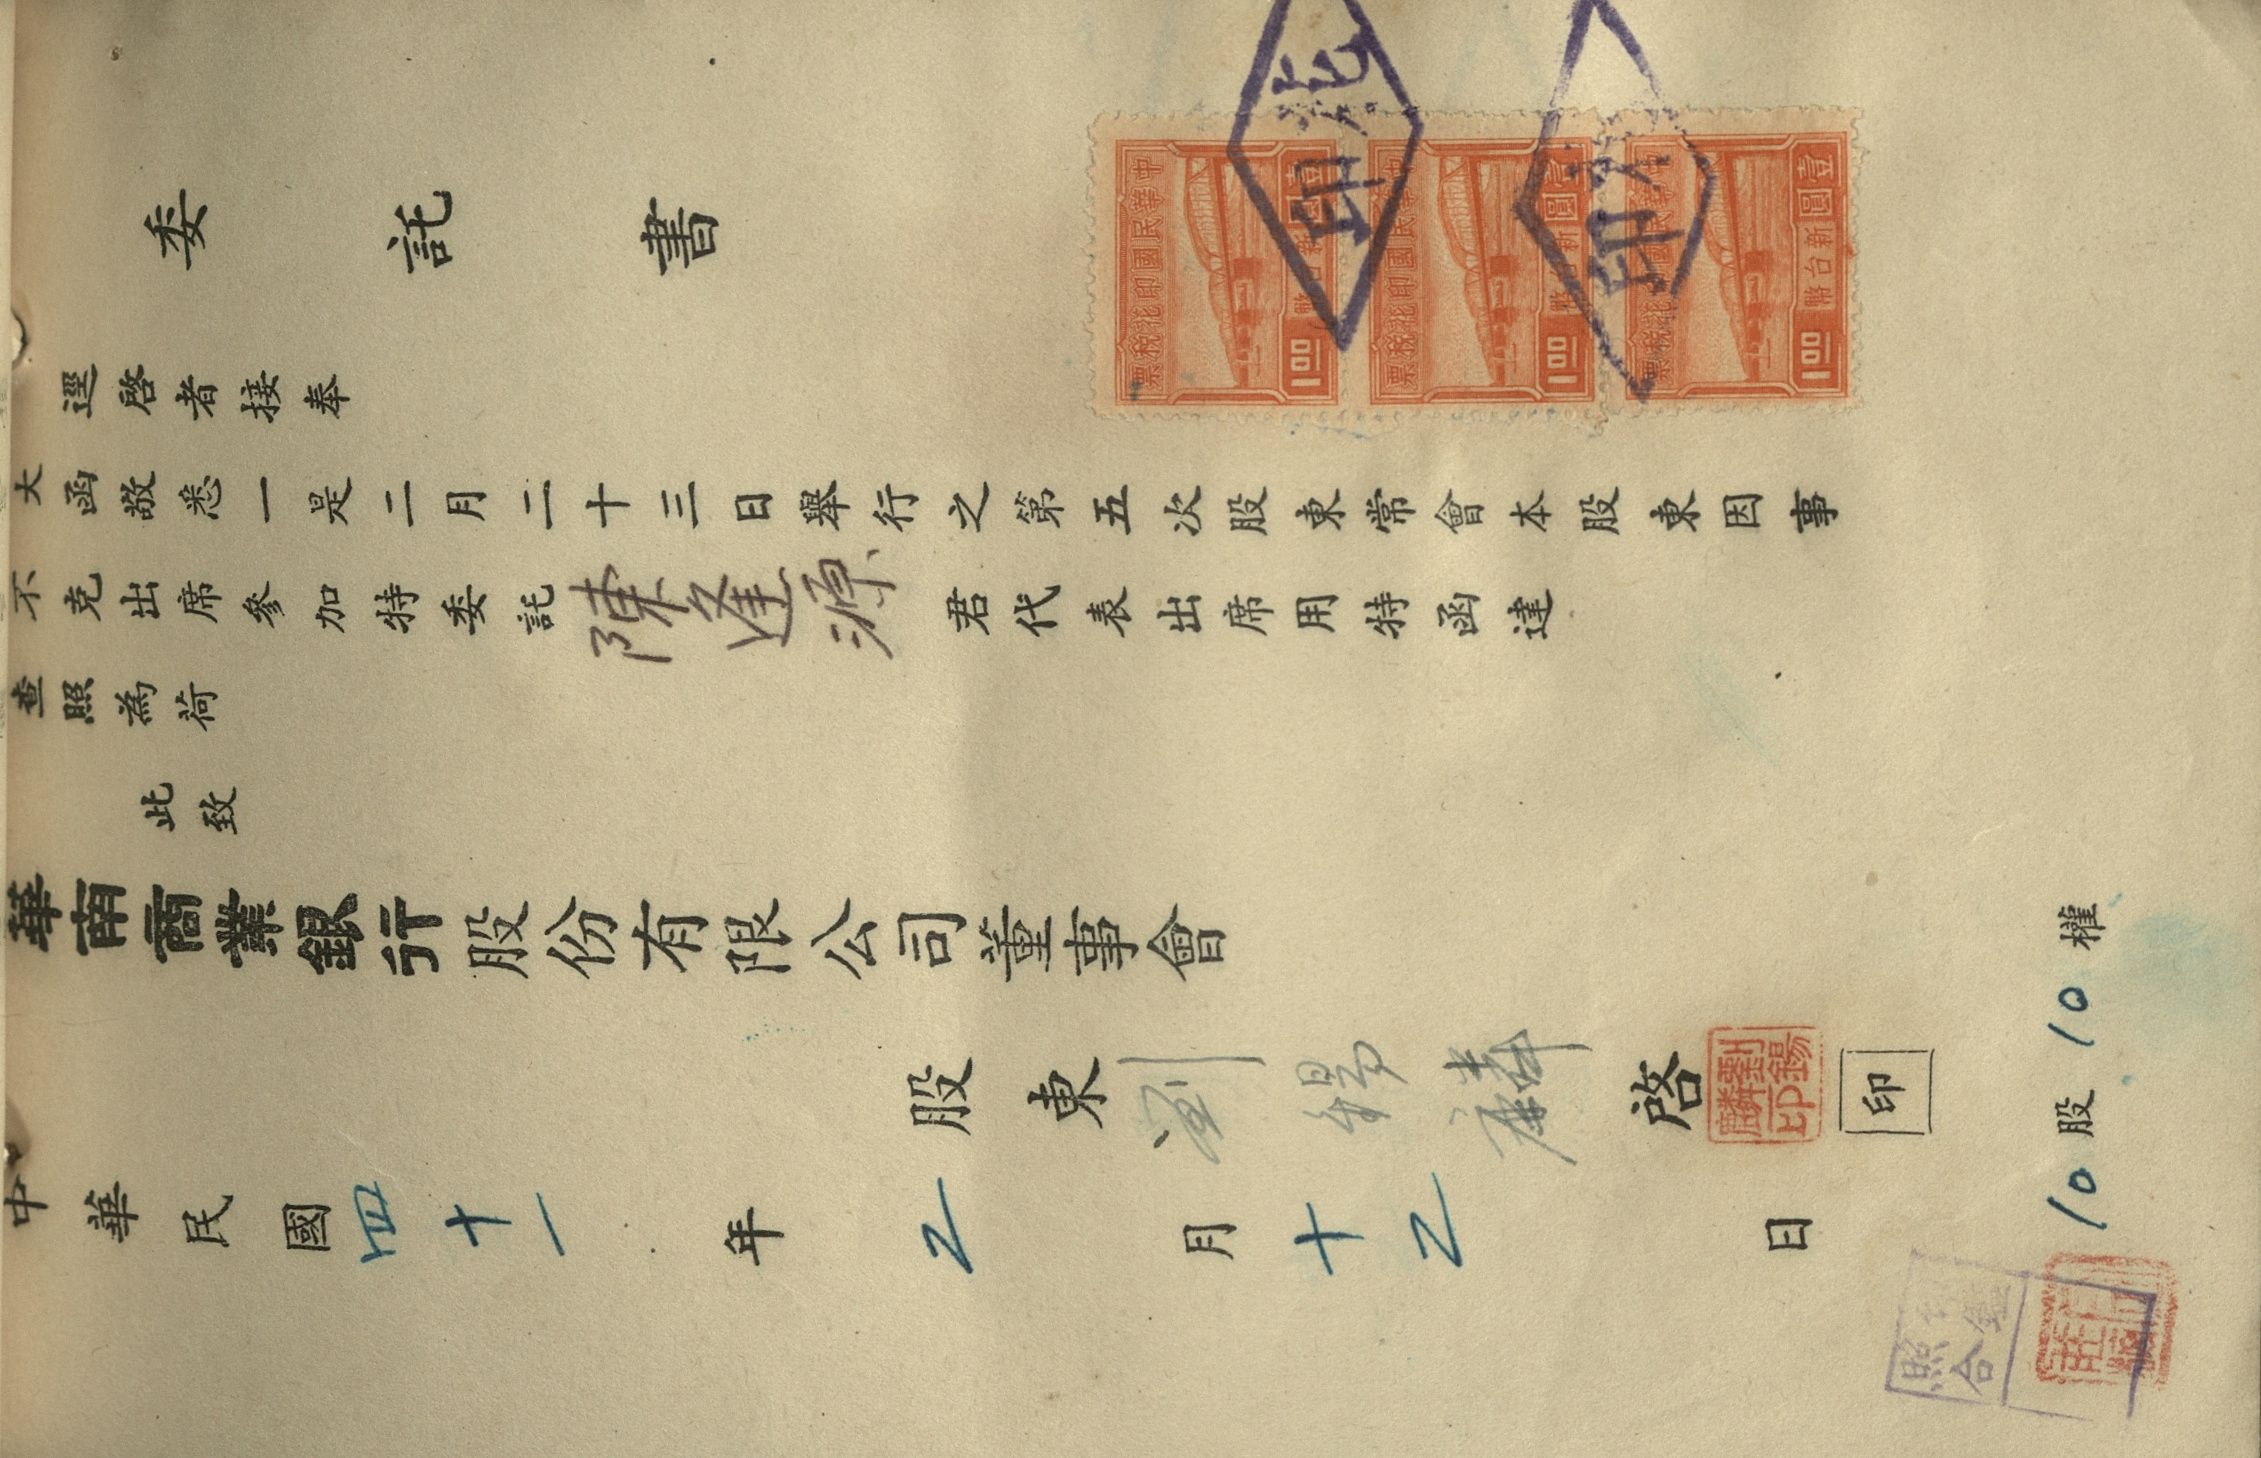 委託書
逕啓者接奉
大函敬悉一是二月二十三日舉行之第五次股東常會本股東因事
不克出席參加特委託陳逢源君代表出席用特函達
查照為荷
此致
華南商業銀行股份有限公司董事會
股東劉錫麟啓
劉錫麟印
印
中華民國四十一年2月十2日
10股10權
照合
中華民國印花稅票
壹圓
新台幣
1.00
中華民國印花稅票
壹圓
新台幣
1.00
中華民國印花稅票
壹圓
新台幣
1.00
印花
印花